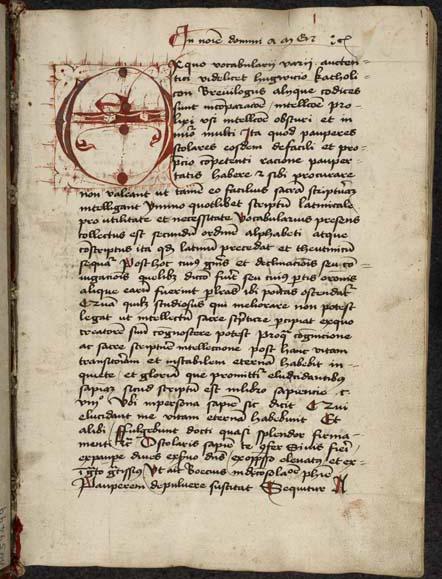 In noie domini amen
Ex quo vocabularii varii autten
tici videlicet hugwicio katholi
con Breuilogus alijque codices
sunt incomparacōe intellcōe pro
lixi vsi intellcōe obscuri et in
nūo multi Ita quod pauperes
scolares eosdem defacili et pro
pcio cōpetenti racione pauper
tatis habere & sibi procurare
non valeant ut tamē eo facilius sacrā scripturā
intelligant Vnīno quotlibet scriptū latinicale
pro utilitate et necessitate Vocabularius presens
collectus est secundū ordinē alphabeti atque
cōscriptus ita qd latinū precedat et theutunicū
sequaī Post hoc cuius gnis et declinationis seu con
iugationis quelibz dicto fuīt seu cuius ptis orōnis
alique earū fuerint plures ibi ponitas ostendat
quibz studiosus qui meliorare non potest
legat ut intellectū sacre scripture pcipiat ex quo
creatorē suū cognoscere potest Proqz cognicione
ac sacre scripturē intellectione post hanc vitam
transitoriam et instabilem eternā habebit in
quiete et gloriā que promittiī elucidantibus
sapiaz sicud scriptū est in libro sapiencie c
viiio Vbi inpersona sapiē sic dicit Qui
elucidant me vitam eternā habebunt Et
alibi ffulgebunt docti quasi splendor firma
menti Scolaris sapiē te
expaupe diues elevatus et ex
Vt ait Boecius
Pauperem depuluere sustitat Sequitur A